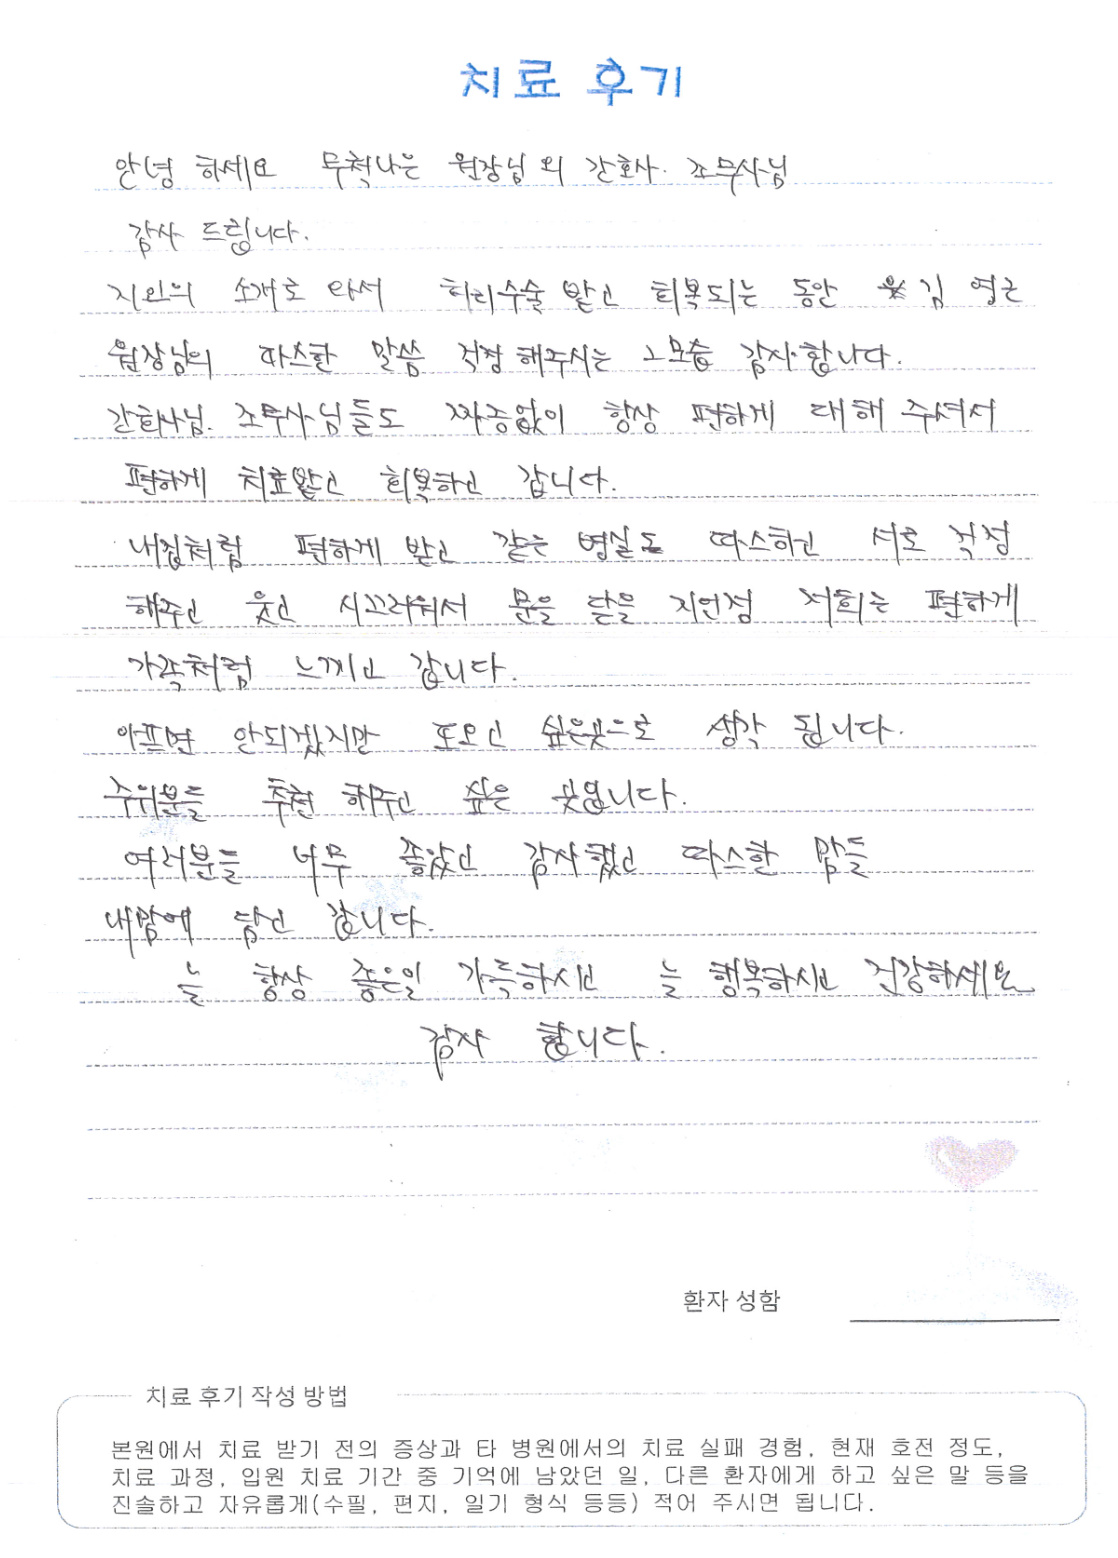 치료 후기
안녕 하세요 무척나은 원장님 외 간호사. 조무사님
감사 드립니다.
지인의 소개로 와서 허리수술 받고 회복되는 동안 김 영근
원장님의 따스한 말씀 걱정 해주시는 그모습 감사합니다.
간호사님. 조무사님들도 짜증없이 항상 편하게 대해 주셔서
편하게 치료받고 회복하고 갑니다.
내집처럼 편하게 받고 같은 병실도 따스하고 서로 걱정
해주고 웃고 시끄러워서 문을 닫을 지언정 저희는 편하게
가족처럼 느끼고 갑니다.
아프면 안되겠지만 또오고 싶은곳으로 생각 됩니다.
주위분들 추천 해주고 싶은 곳입니다.
여러분들 너무 좋았고 감사했고 따스한 맘들
내맘에 담고 갑니다.
늘 항상 좋은일 가득하시고 늘 행복하시고 건강하세요
감사 합니다.
환자 성함
치료 후기 작성 방법
본원에서 치료 받기 전의 증상과 타 병원에서의 치료 실패 경험, 현재 호전 정도,
치료 과정, 입원 치료 기간 중 기억에 남았던 일, 다른 환자에게 하고 싶은 말 등을
진솔하고 자유롭게(수필, 편지, 일기 형식 등등) 적어 주시면 됩니다.